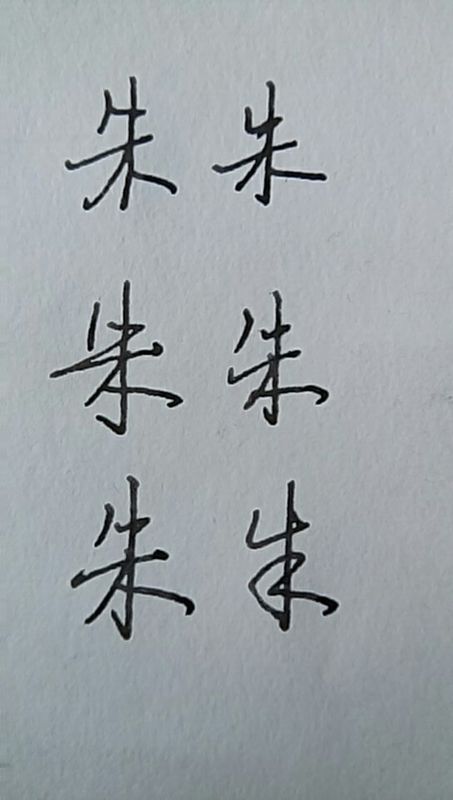 朱 朱
朱 朱
朱 朱